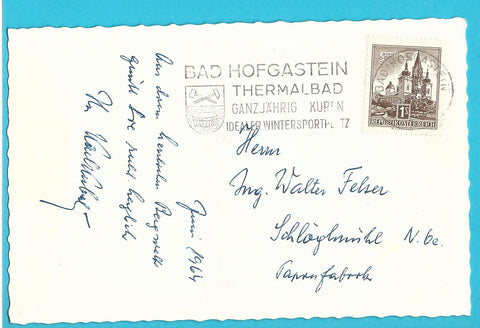 BAD HOFGASTEIN
THERMALBAD
GANZJÄHRIG KUREN
IDEALER WINTERSPORTPLATZ
BAD HOFGASTEIN
1S
REPUBLIK ÖSTERREICH
Juni 1964
Aus dem herrlichen Bergwelt
grüßt Sie recht herzlich
Ihr
Herrn
Ing. Walter Felser
Schlöglmühl N.Öe.
Papierfabrik